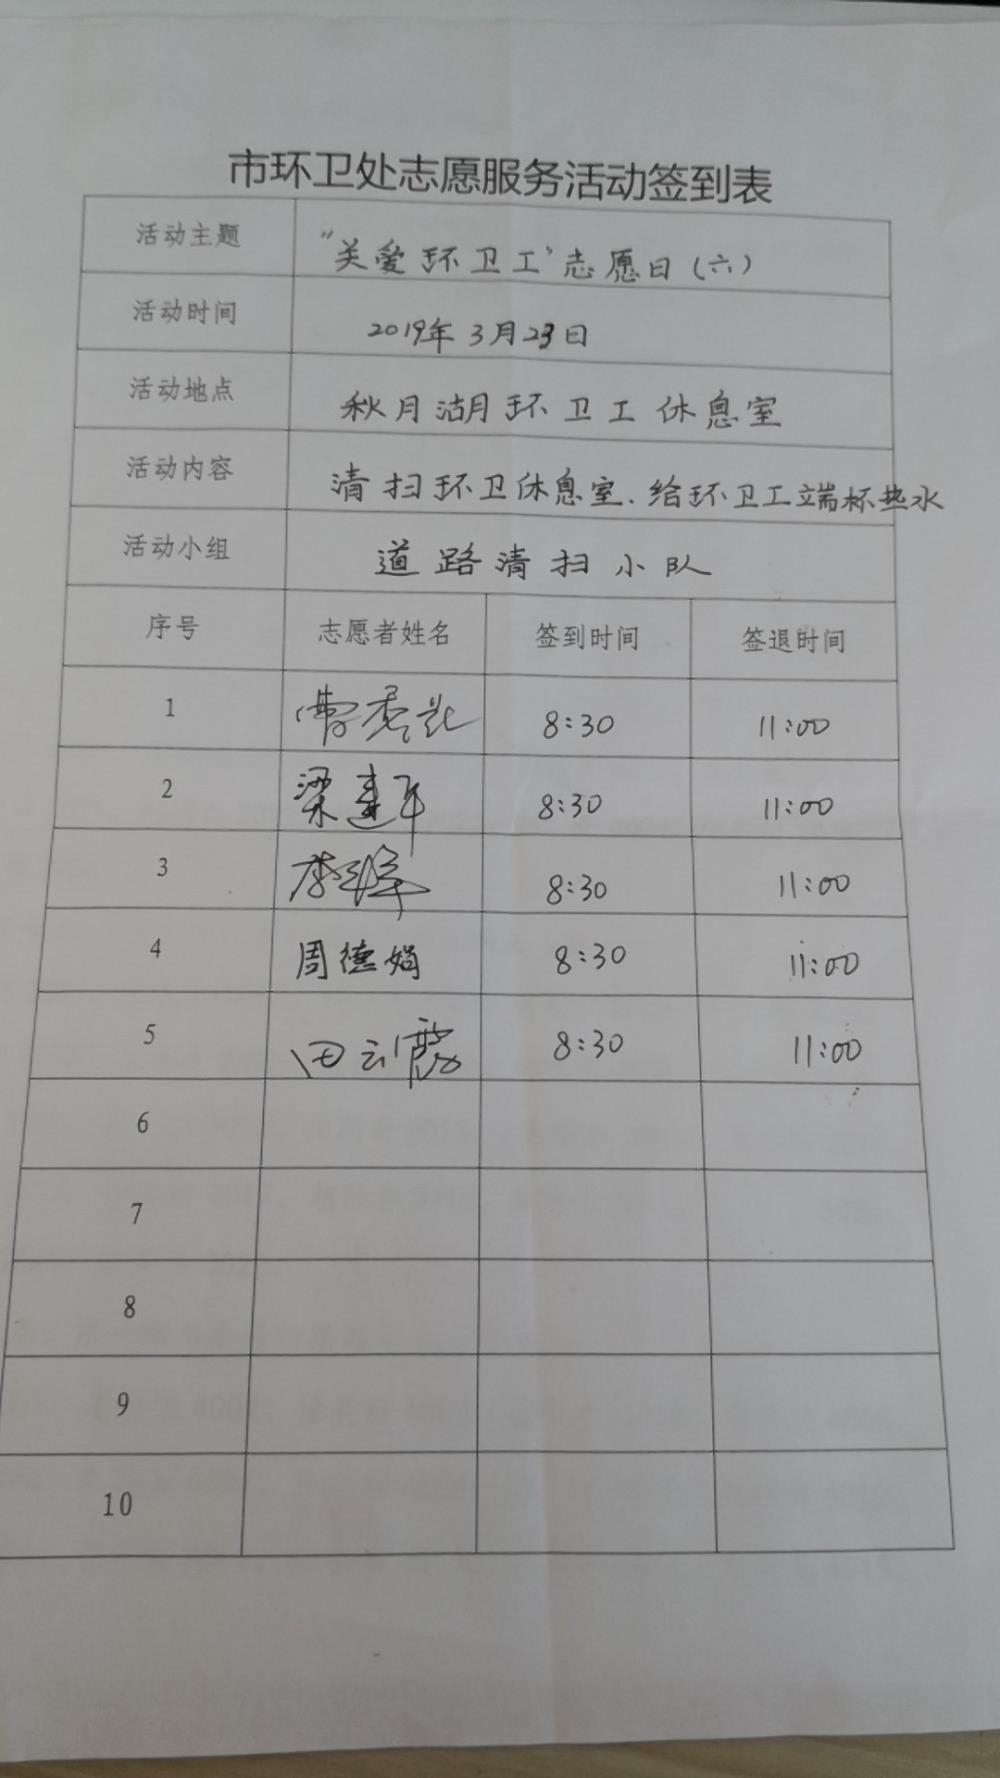 市环卫处志愿服务活动签到表
活动主题 “关爱环卫工”志愿日(六)
活动时间 2019年3月23日
活动地点 秋月湖环卫工休息室
活动内容 清扫环卫休息室、给环卫工端杯热水
活动小组 道路清扫小队
序号 志愿者姓名 签到时间 签退时间
1 8:30 11:00
2 梁建军 8:30 11:00
3 李 8:30 11:00
4 周德娟 8:30 11:00
5 田云霞 8:30 11:00
6
7
8
9
10